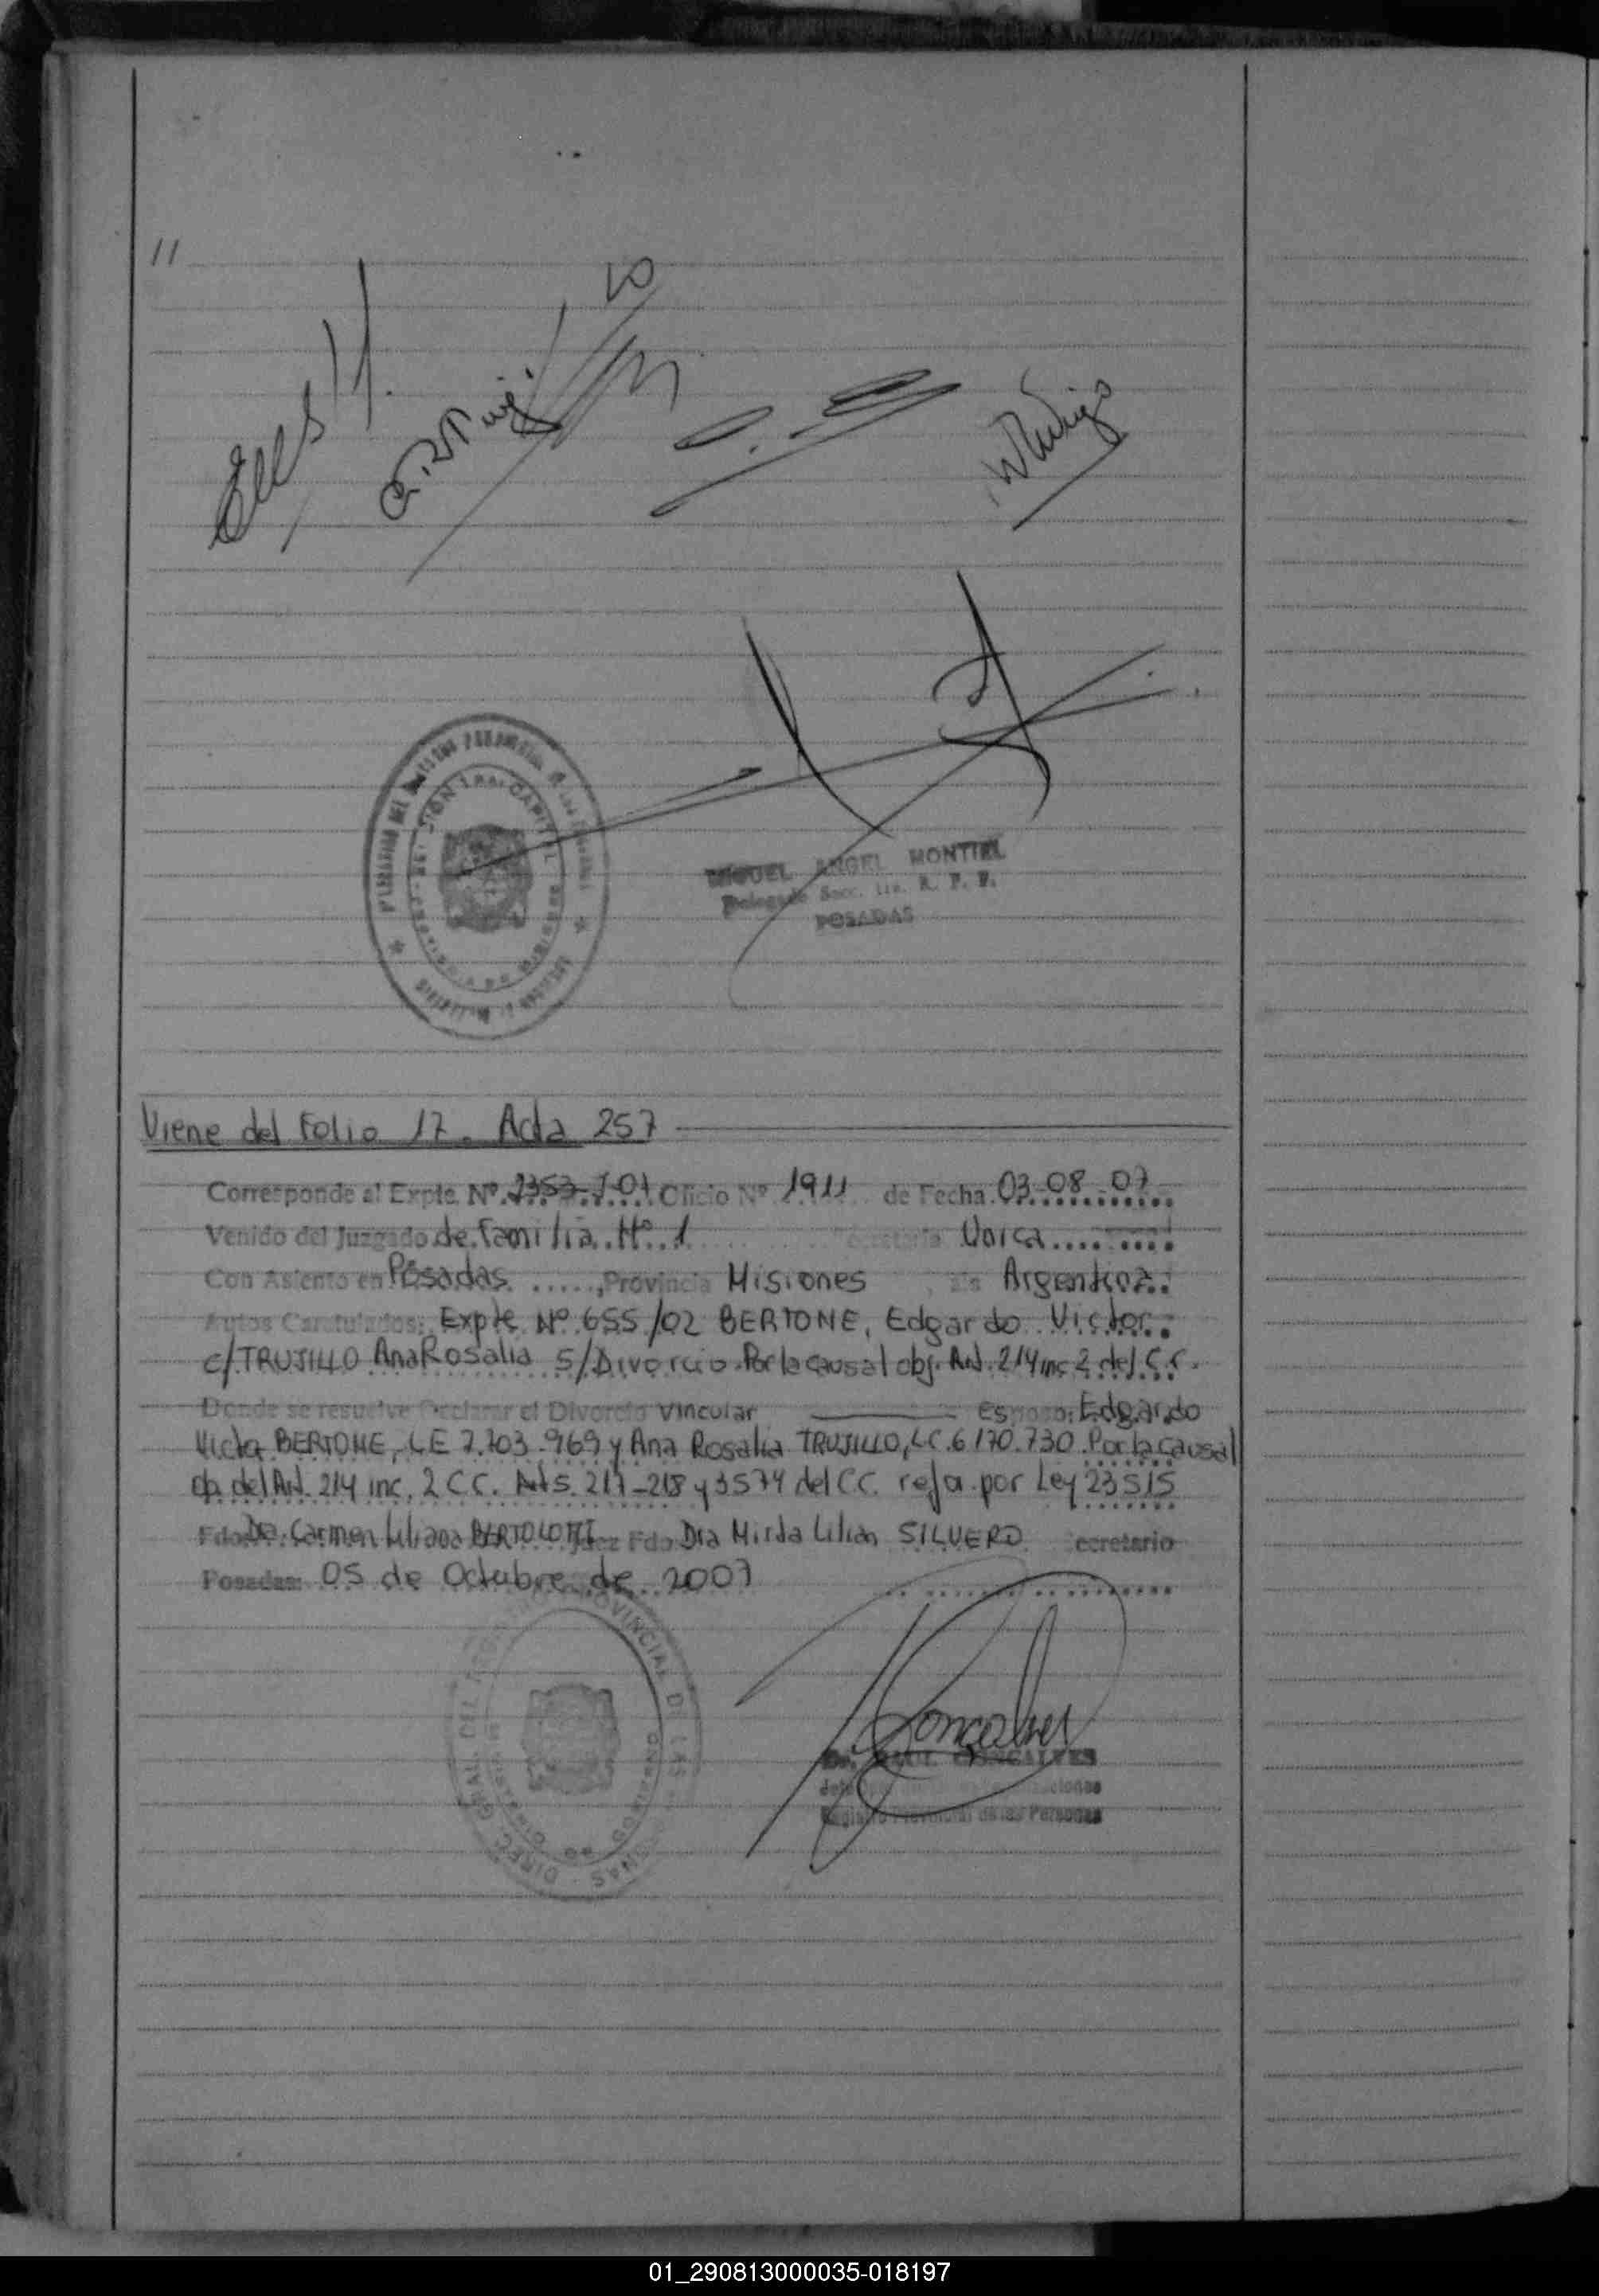 11
MIGUEL ANGEL MONTIEL
POSADAS
Viene del Folio 17. Acta 257
Corresponde al Expte. Nº Oficio Nº 1911 de Fecha 03-08-07
Venido del Juzgado de Familia Nº 1 Secretaria Unica
Con Asiento en Posadas, Provincia Misiones Argentina.
Autos Caratulados: Expte Nº 655/02 BERTONE, Edgardo Victor
c/ TRUJILLO Ana Rosalia S/Divorcio Por la causal obj. Art. 214 inc 2 del C.C.
Donde se resuelve Declarar el Divorcio Vincular Esposo: Edgardo
Victor BERTONE, LE 7.703.969 y Ana Rosalia TRUJILLO, LC. 6170.730 Por la causal
del Art. 214 inc. 2 C.C. Arts. 217-218 y 3574 del C.C. por Ley 23515
Fdo. Dra. Carmen Liliana BERTOLOTTI Juez Fdo Dra Mirda Lilian SILVERO Secretario
Posadas: 05 de Octubre de 2007
Goncalves
Dr. RAUL GONCALVES
Registro Provincial de las Personas
01_290813000035-018197